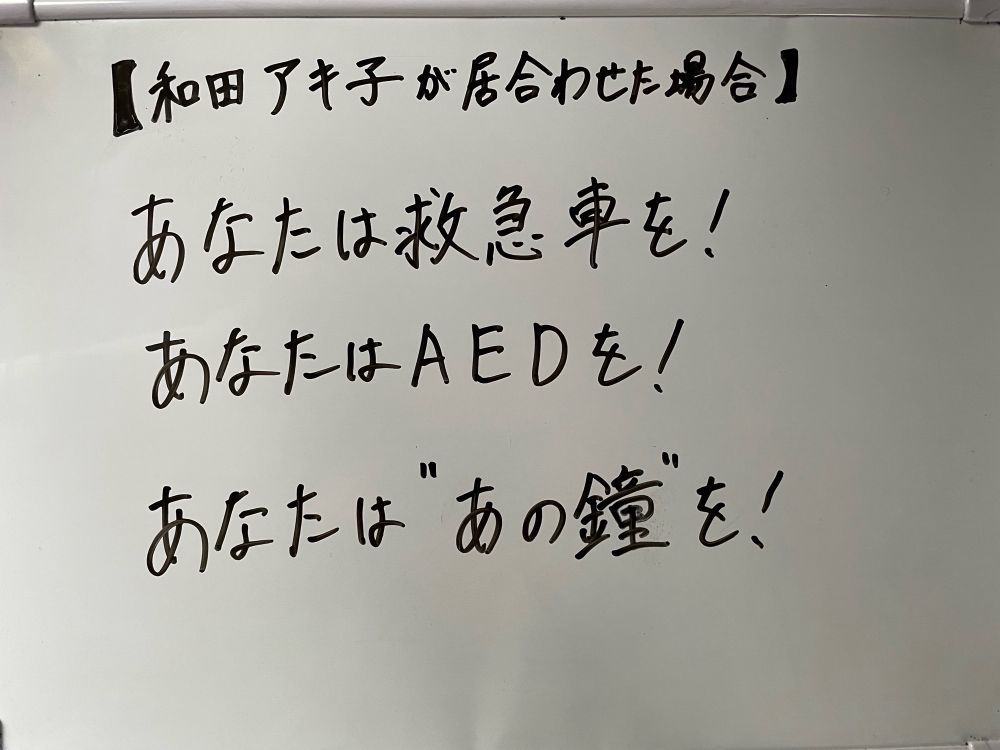 【和田アキ子が居合わせた場合】
あなたは救急車を!
あなたはAEDを!
あなたは"あの鐘"を!